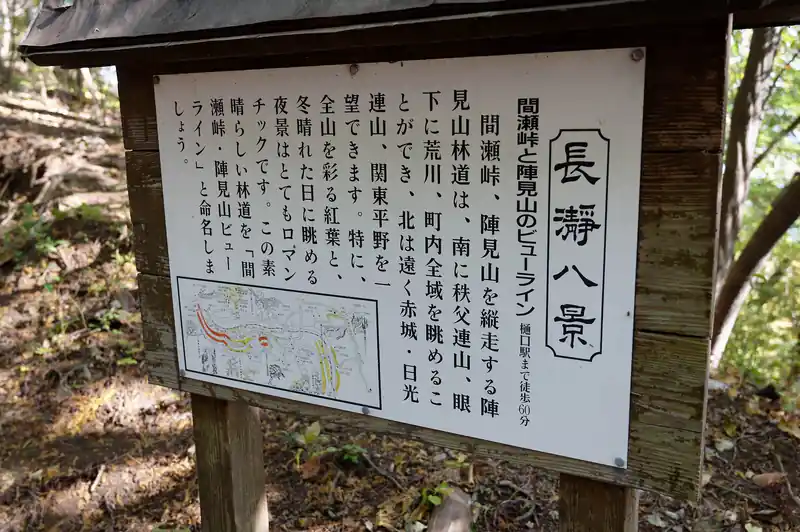 長瀞八景
間瀬峠と陣見山のビューライン 樋口駅まで徒歩60分
間瀬峠、陣見山を縦走する陣
見山林道は、南に秩父連山、眼
下に荒川、町内全域を眺めるこ
とができ、北は遠く赤城・日光
連山、関東平野を一
望できます。特に、
全山を彩る紅葉と、
冬晴れた日に眺める
夜景はとてもロマン
チックです。この素
晴らしい林道を「間
瀬峠・陣見山ビュー
ライン」と命名しま
しょう。